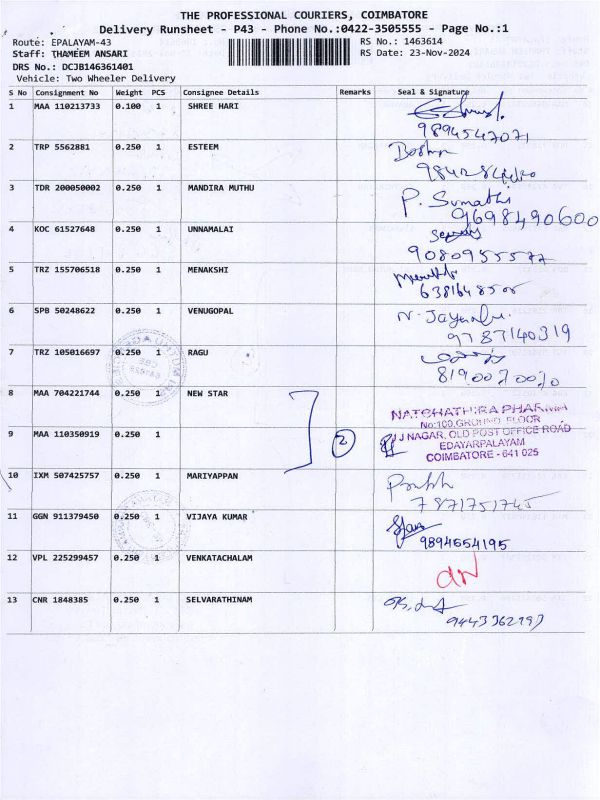 THE PROFESSIONAL COURIERS, COIMBATORE
Delivery Runsheet - P43 - Phone No.:0422-3505555 - Page No.:1
Route: EPALAYAM-43 RS No.: 1463614
Staff: THAMEEM ANSARI RS Date: 23-Nov-2024
DRS No.: DCJB146361401
Vehicle: Two Wheeler Delivery
S No Consignment No Weight PCS Consignee Details Remarks Seal & Signature
1 MAA 110213733 0.100 1 SHREE HARI
9894547071
2 TRP 5562881 0.250 1 ESTEEM
3 TDR 200050002 0.250 1 MANDIRA MUTHU P. Sumathi
9698490600
4 KOC 61527648 0.250 1 UNNAMALAI
5 TRZ 155706518 0.250 1 MENAKSHI
6 SPB 50248622 0.250 1 VENUGOPAL
9787140319
7 TRZ 105016697 0.250 1 RAGU
8 MAA 704221744 0.250 1 NEW STAR NATCHATHIRA PHARMA
No:100,GROUND FLOOR
9 MAA 110350919 0.250 1 2 J J NAGAR, OLD POST OFFICE ROAD
EDAYARPALAYAM
COIMBATORE - 641 025
10 IXM 507425757 0.250 1 MARIYAPPAN
7871751745
11 GGN 911379450 0.250 1 VIJAYA KUMAR
9894654195
12 VPL 225299457 0.250 1 VENKATACHALAM
13 CNR 1848385 0.250 1 SELVARATHINAM